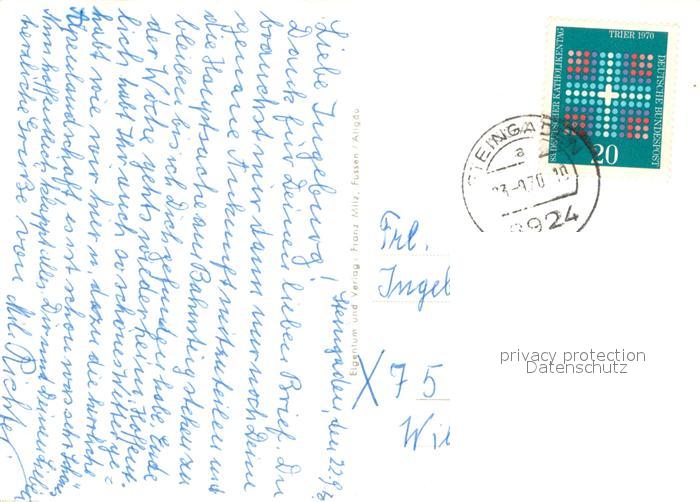 Steingaden, den 22.9.70
Liebe Ingeburg!
Dank für Deinen lieben Brief. Du
brauchst mir dann nur noch Deine
genaue Ankunft mitzuteilen und
die Hauptsache am Bahnsteig stehen zu
bleiben bis ich Dich gefunden habe. Ende
der Woche gehts wieder heim. Hoffent-
lich habt Ihr auch so schönes Wetter ge-
habt wie wir hier u. dann die herrliche
Alpenlandschaft, es ist schon was sehr Schönes
Nun hoffentlich klappt alles, Dir und Deinen Lieben
herzliche Grüße von M. Richter
Eigentum und Verlag: Franz Milz, Füssen/Allgäu
83. DEUTSCHER KATHOLIKENTAG
TRIER 1970
DEUTSCHE BUNDESPOST
20
STEINGADEN
a
23.-9.70-10
8924
Frl.
Ingeb
X 75
Wil
privacy protection
Datenschutz